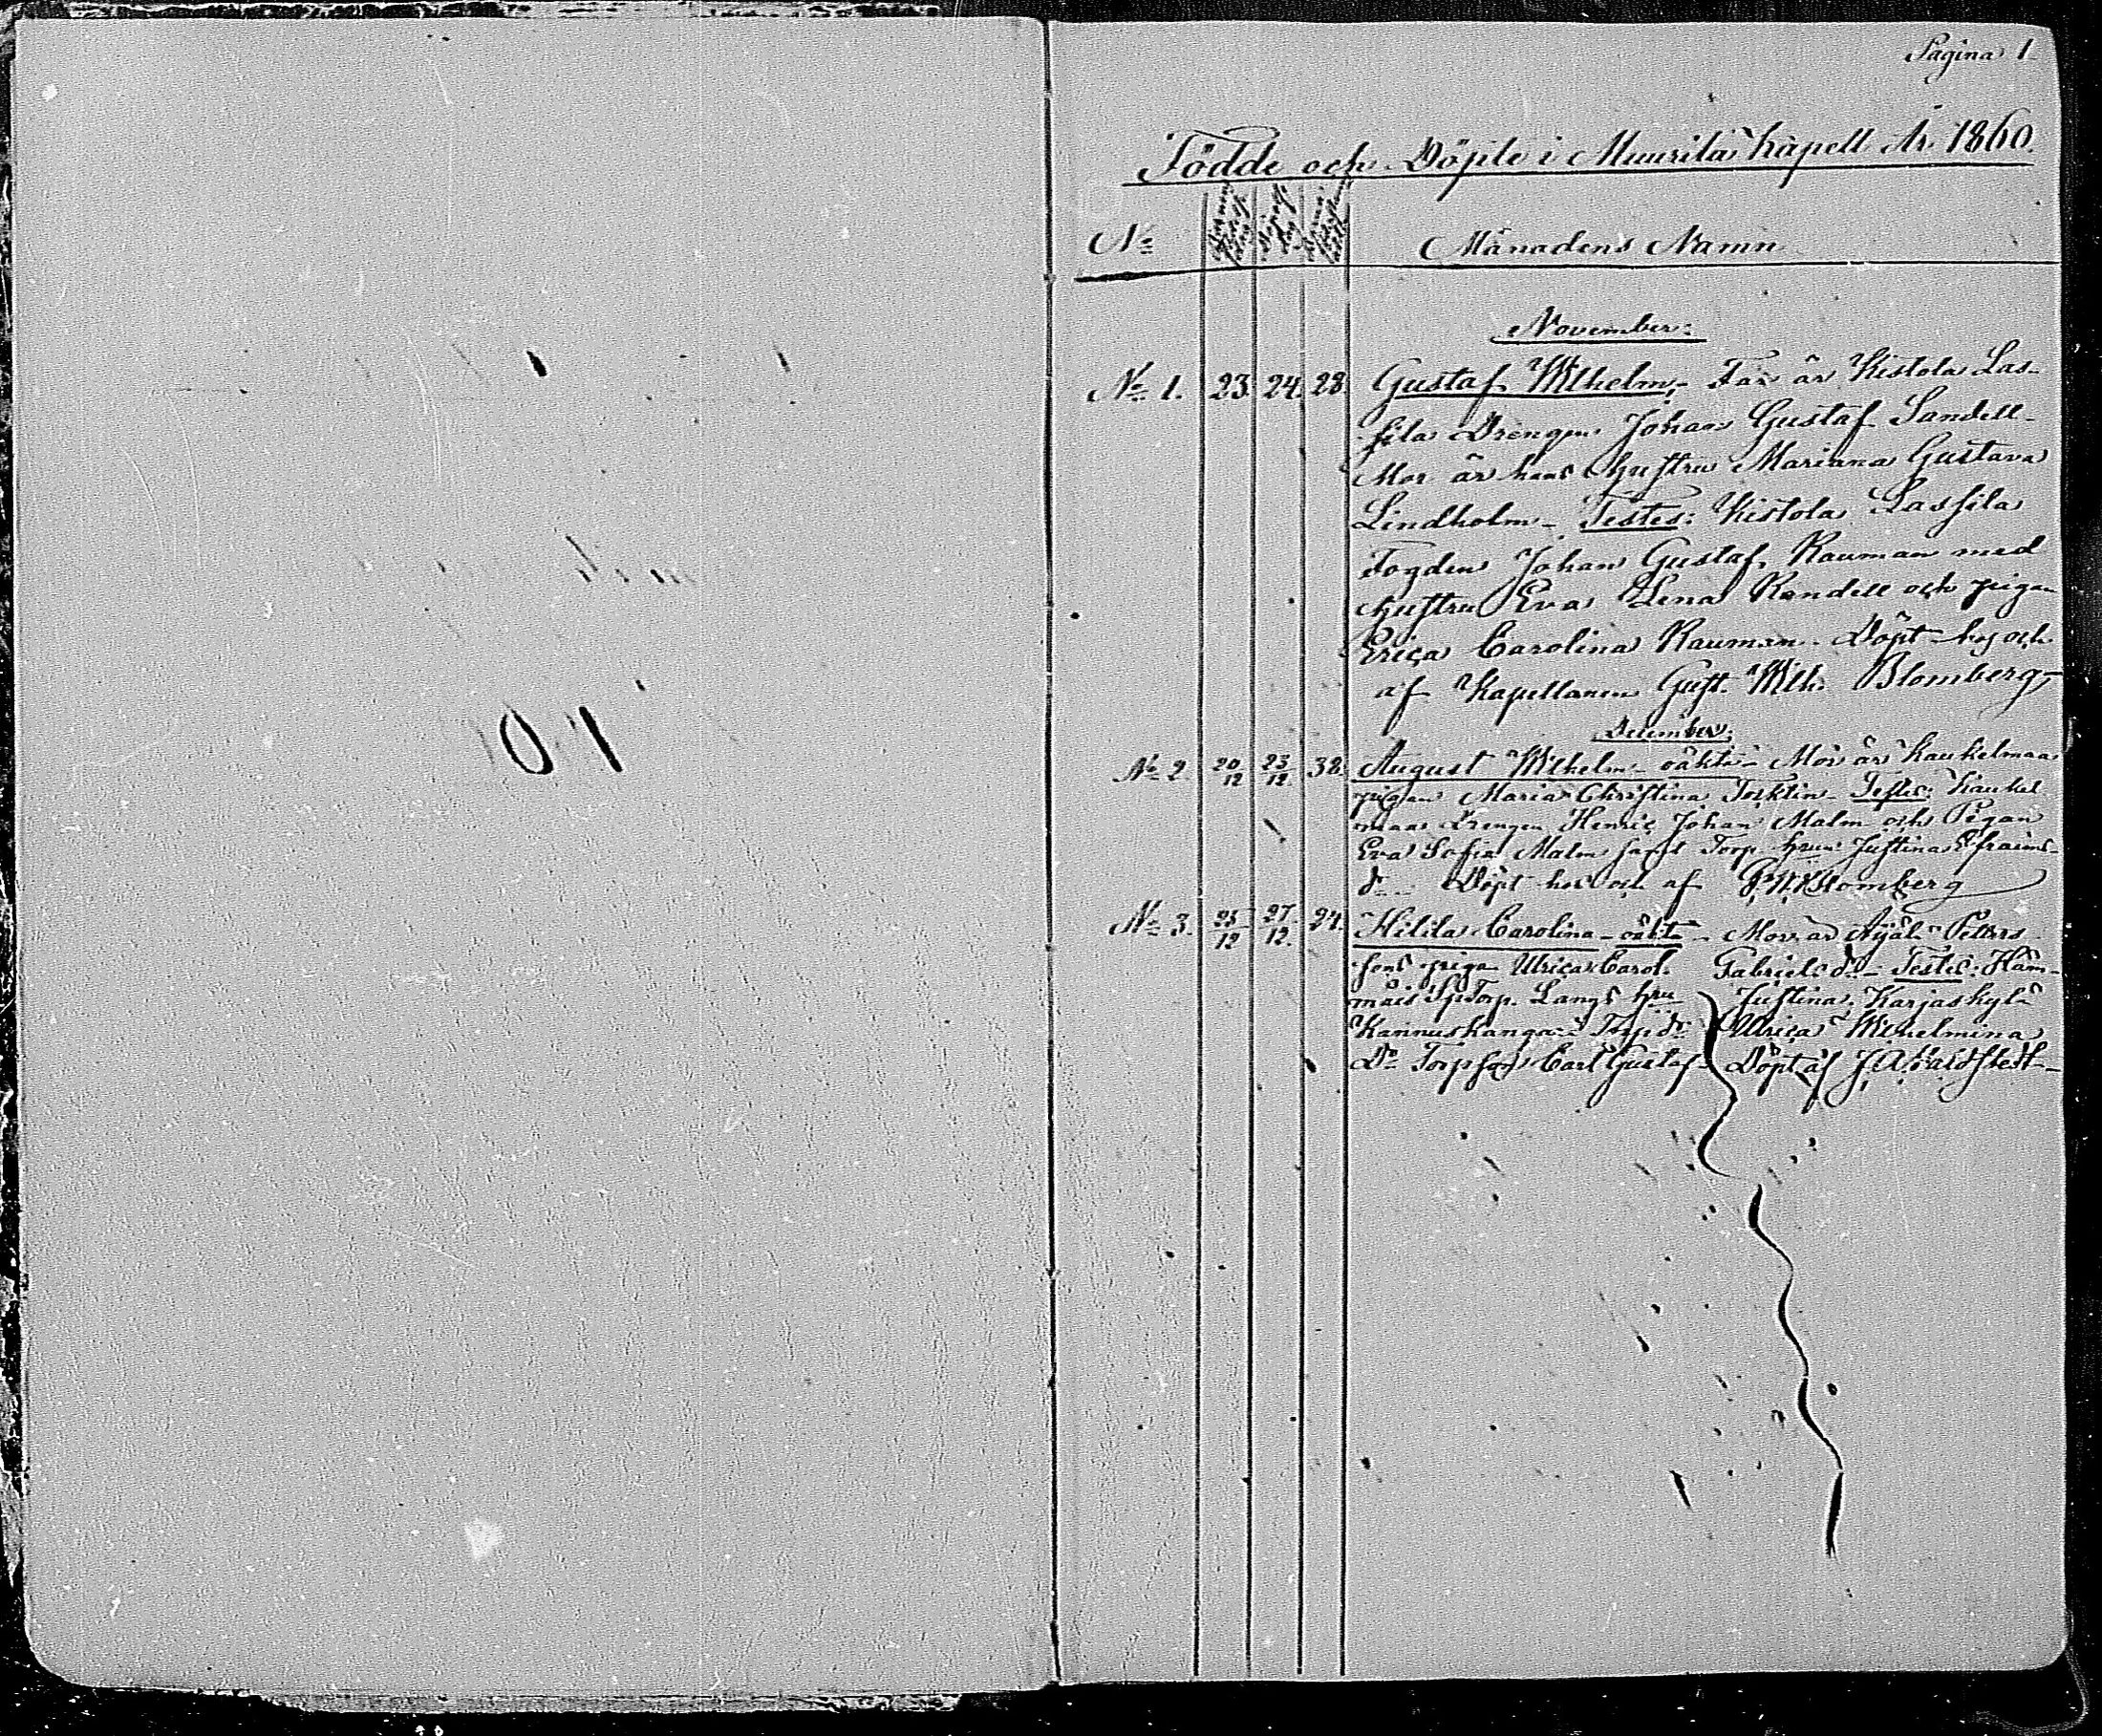 01
Pagina 1
Födde och Döpte i Muurila Kapell År 1860.
No
Månadens Namn
November:
No 1. 23. 24. 28. Gustaf Wilhelm, Far är Kistola Las-
sila Drengen Johan Gustaf Sandell-
Mor är hans hustru Mariana Gustava
Lindholm - Testes: Kistola Lassila
Fogden Johan Gustaf Rauman med
hustru Eva Lena Randell och pigan
Erica Carolina Rauman. Döpt hos och
af Kapellanen Gust. Wilh. Blomberg
December:
No 2 20/12 23/12. 38. August Wilhelm - oäkta - Mor är Kaukelmaa
pigan Maria Christina - Testes: Kaukel
maa Drengen Henric Johan Malm och Pigan
Eva Sofia Malm samt Torp. hrun Justina Efraims-
dr Döpt hos och af G.W. Blomberg
No 3. 25/12 27/12. 24. Carolina - oäkta - Mor är Äijälä Petters
sons piga Ulrica Carol. Gabrielsdr - Testes: Häm-
Torp. Långs hru Justina, Karjaskylä
Kannuskanga Torp dr Ulrica Wilhelmina
Do Torpson Carl Gustaf - Döpt af